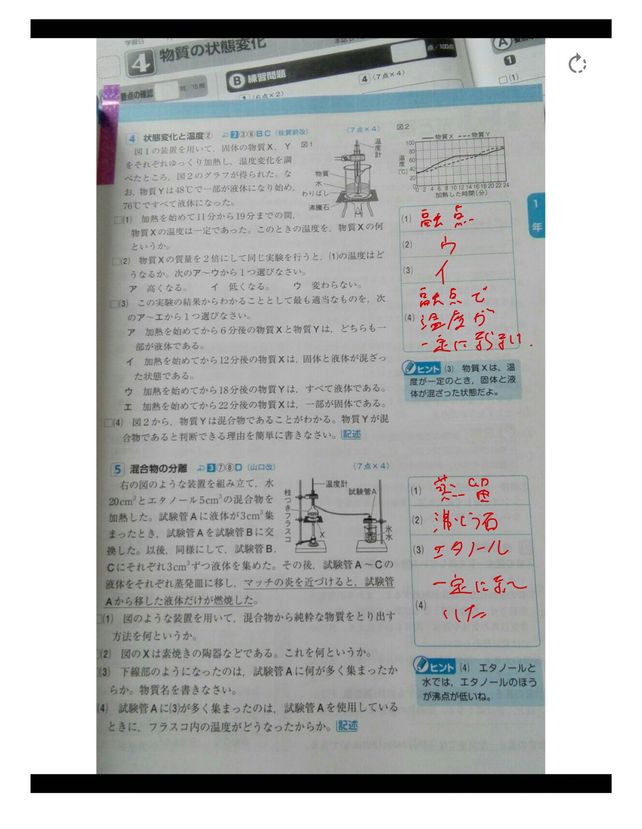 学習日
4 物質の状態変化
A
要点の確認
問/15問
B 練習問題
点/100点
4 (7点×4)
1 (6点×2)
1
□(1)
4 状態変化と温度② 2③⑥BC (佐賀前改) (7点×4)
図1の装置を用いて，固体の物質X，Y
をそれぞれゆっくり加熱し，温度変化を調
べたところ，図2のグラフが得られた。な
お，物質Yは48℃で一部が液体になり始め，
76℃ですべて液体になった。
図1
温度計
物質
水
わりばし
沸騰石
図2
物質X 物質Y
温度(℃)
100
80
60
40
20
0
0 2 4 6 8 10 12 14 16 18 20 22 24
加熱した時間(分)
□(1) 加熱を始めて11分から19分までの間，
物質Xの温度は一定であった。このときの温度を，物質Xの何
というか。
□(2) 物質Xの質量を2倍にして同じ実験を行うと，(1)の温度はど
うなるか。次のア〜ウから1つ選びなさい。
ア 高くなる。 イ 低くなる。 ウ 変わらない。
□(3) この実験の結果からわかることとして最も適当なものを，次
のア〜エから1つ選びなさい。
ア 加熱を始めてから6分後の物質Xと物質Yは，どちらも一
部が液体である。
イ 加熱を始めてから12分後の物質Xは，固体と液体が混ざっ
た状態である。
ウ 加熱を始めてから18分後の物質Yは，すべて液体である。
エ 加熱を始めてから22分後の物質Xは，一部が固体である。
□(4) 図2から，物質Yは混合物であることがわかる。物質Yが混
合物であると判断できる理由を簡単に書きなさい。記述
(1) 融点
(2) ウ
(3) イ
(4) 融点で
温度が
一定に
ヒント (3) 物質Xは，温
度が一定のとき，固体と液
体が混ざった状態だよ。
1年
5 混合物の分離 3⑦⑧D (山口改) (7点×4)
右の図のような装置を組み立て，水
20cm³とエタノール5cm³の混合物を
加熱した。試験管Aに液体が3cm³集
まったとき，試験管Aを試験管Bに交
換した。以後，同様にして，試験管B，
Cにそれぞれ3cm³ずつ液体を集めた。その後，試験管A〜Cの
液体をそれぞれ蒸発皿に移し，マッチの炎を近づけると，試験管
Aから移した液体だけが燃焼した。
温度計
試験管A
枝つきフラスコ
X
氷水
□(1) 図のような装置を用いて，混合物から純粋な物質をとり出す
方法を何というか。
□(2) 図のXは素焼きの陶器などである。これを何というか。
(3) 下線部のようになったのは，試験管Aに何が多く集まったか
らか。物質名を書きなさい。
(4) 試験管Aに(3)が多く集まったのは，試験管Aを使用している
ときに，フラスコ内の温度がどうなったからか。記述
(1) 蒸留
(2) 沸とう石
(3) エタノール
(4) 一定に
した
ヒント (4) エタノールと
水では，エタノールのほう
が沸点が低いね。